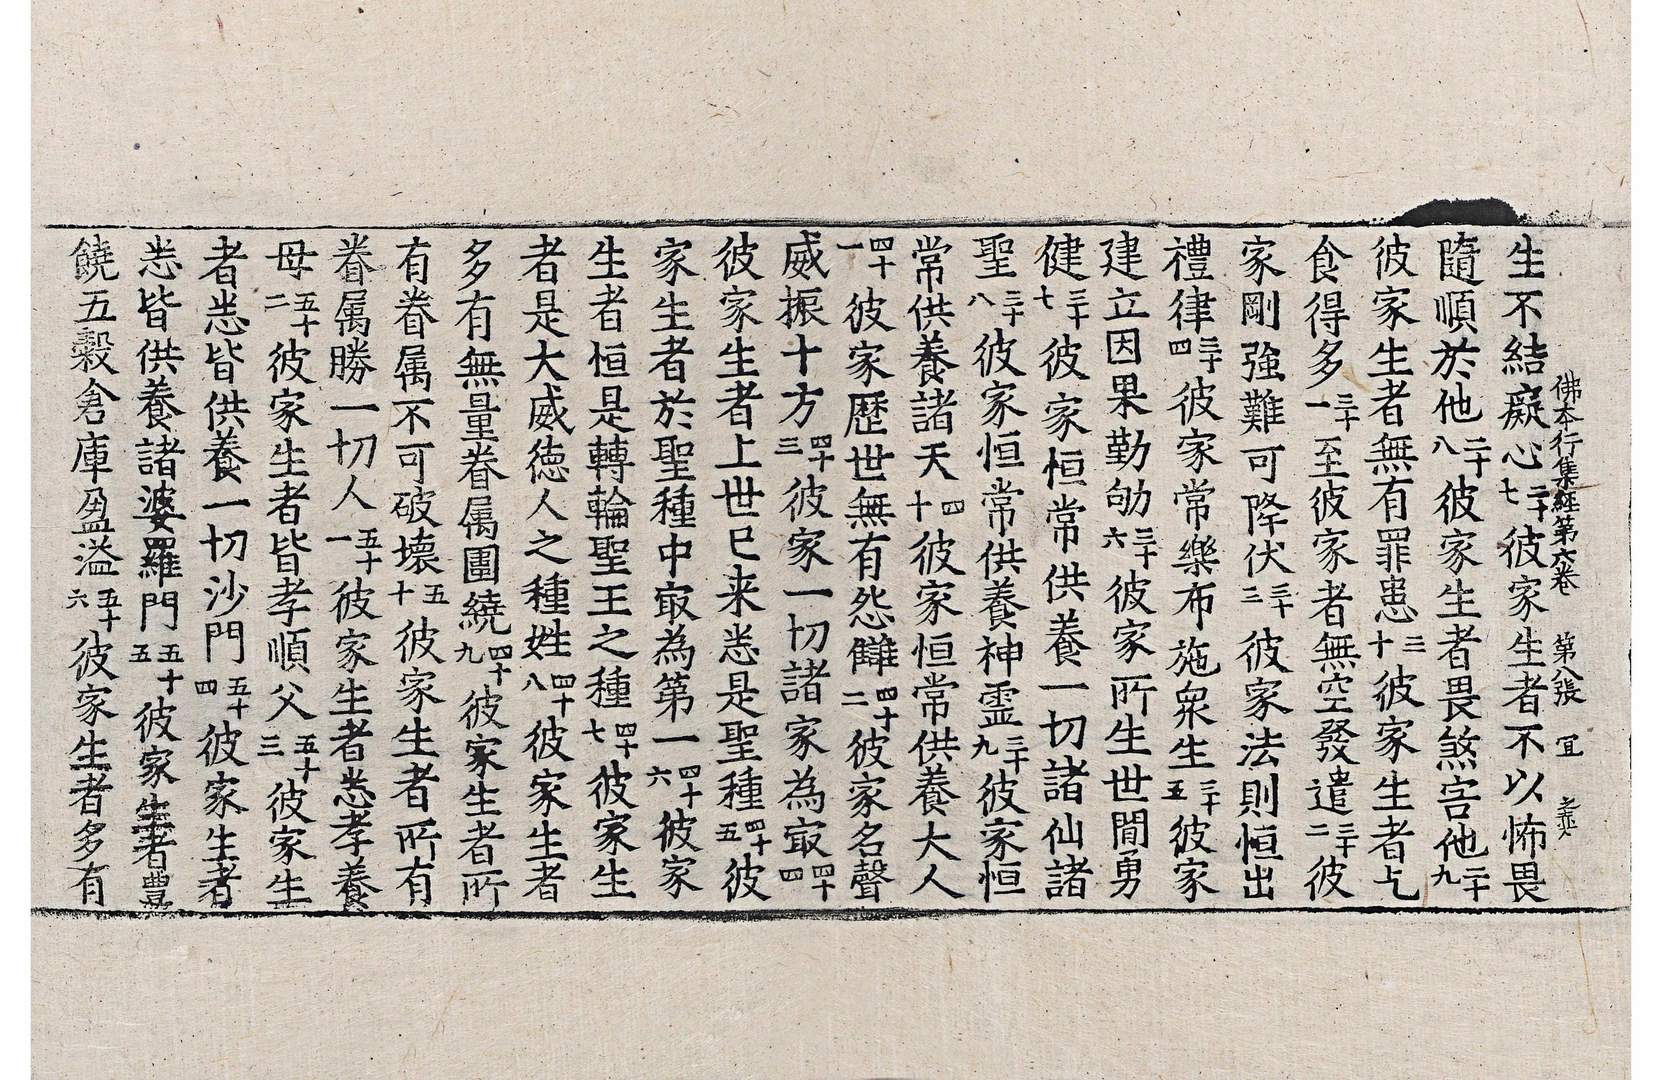 佛本行集經第六卷 第八張 冝
生不結癡心二十七彼家生者不以怖畏
隨順於他二十八彼家生者畏煞害他二十九
彼家生者無有罪患三十彼家生者乞
食得多三十一至彼家者無空發遣三十二彼
家剛強難可降伏三十三彼家法則恒出
禮律三十四彼家常樂布施衆生三十五彼家
建立因果勤劬三十六彼家所生世間勇
健三十七彼家恒常供養一切諸仙諸
聖三十八彼家恒常供養神霊三十九彼家恒
常供養諸天四十彼家恒常供養大人
四十一彼家歷世無有怨讎四十二彼家名聲
威振十方四十三彼家一切諸家為㝡四十四
彼家生者上世已来悉是聖種四十五彼
家生者於聖種中㝡為第一四十六彼家
生者恒是轉輪聖王之種四十七彼家生
者是大威徳人之種姓四十八彼家生者
多有無量眷属圍繞四十九彼家生者所
有眷属不可破壞五十彼家生者所有
眷属勝一切人五十一彼家生者悉孝養
母五十二彼家生者皆孝順父五十三彼家生
者悉皆供養一切沙門五十四彼家生者
悉皆供養諸婆羅門五十五彼家生者豊
饒五穀倉庫盈溢五十六彼家生者多有